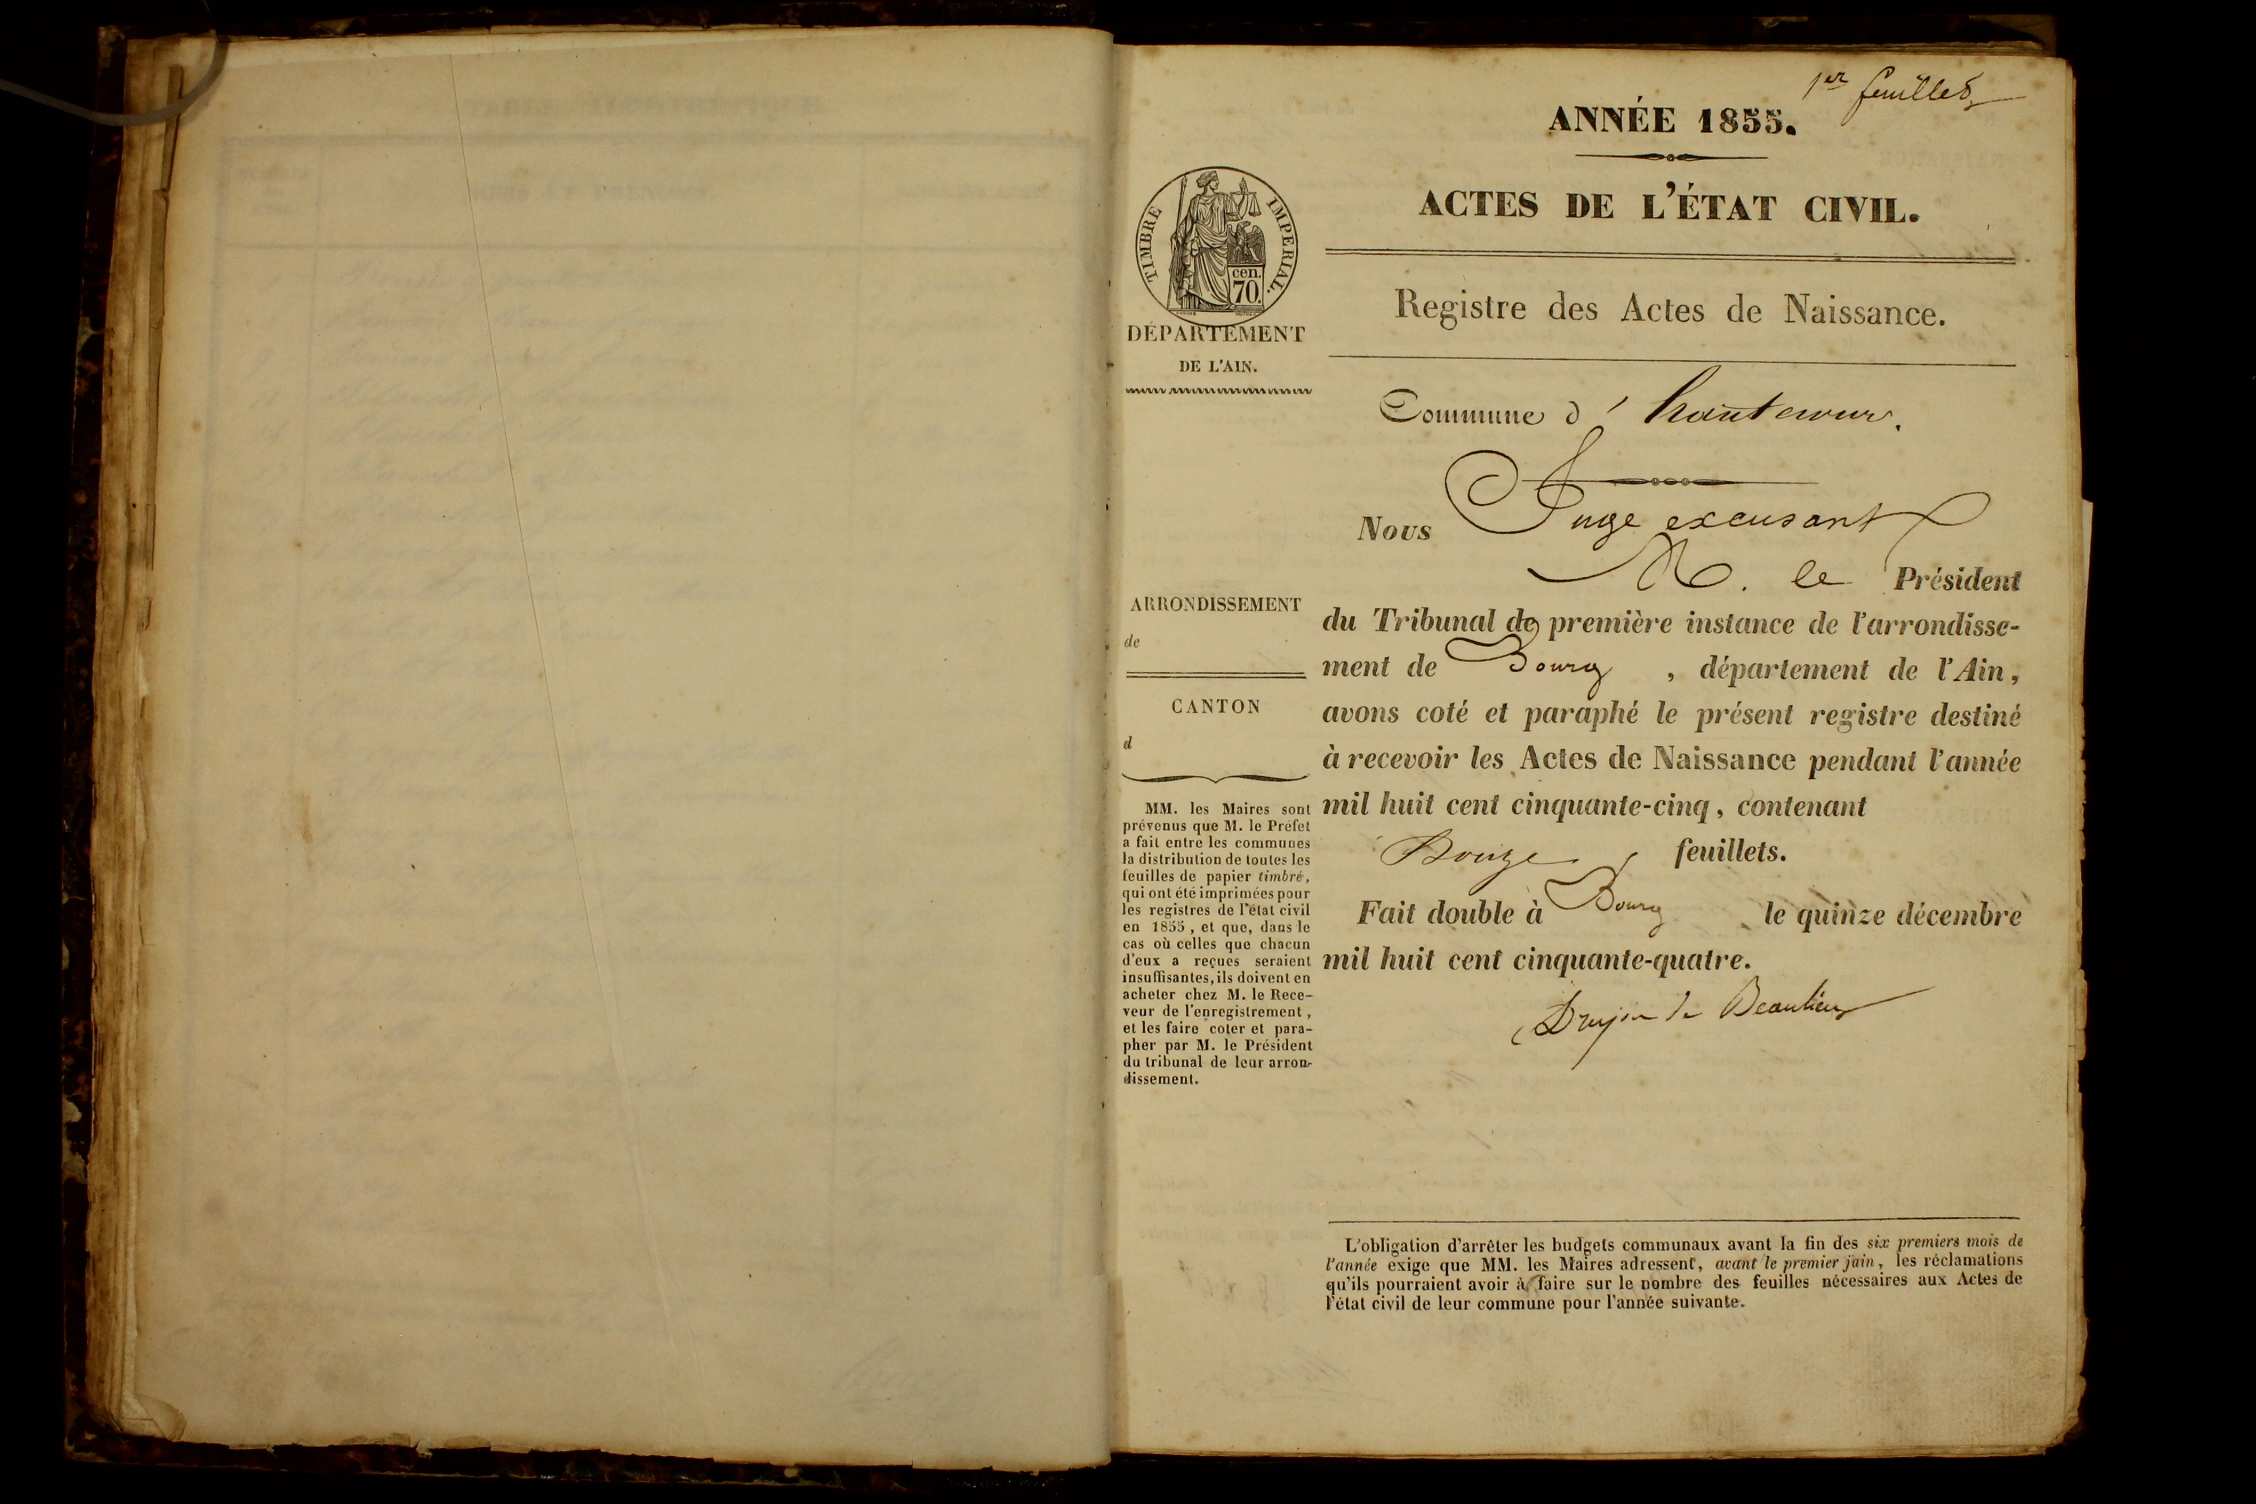 1er feuillet
ANNÉE 1855.
ACTES DE L'ÉTAT CIVIL.
TIMBRE IMPERIAL.
cen.
70.
DÉPARTEMENT
DE L'AIN.
Registre des Actes de Naissance.
Commune d'hautecour.
Nous Juge excusant
M. le Président
du Tribunal de première instance de l'arrondisse-
ment de Bourg, département de l'Ain,
avons coté et paraphé le présent registre destiné
à recevoir les Actes de Naissance pendant l'année
mil huit cent cinquante-cinq, contenant
feuillets.
Fait double à Bourg le quinze décembre
mil huit cent cinquante-quatre.
Drujon de Beaulieu
ARRONDISSEMENT
de
CANTON
d
MM. les Maires sont
prévenus que M. le Préfet
a fait entre les communes
la distribution de toutes les
feuilles de papier timbré,
qui ont été imprimées pour
les registres de l'état civil
en 1855, et que, dans le
cas où celles que chacun
d'eux a reçues seraient
insuffisantes, ils doivent en
acheter chez M. le Rece-
veur de l'enregistrement,
et les faire coter et para-
pher par M. le Président
du tribunal de leur arron-
dissement.
L'obligation d'arrêter les budgets communaux avant la fin des six premiers mois de
l'année exige que MM. les Maires adressent, avant le premier juin, les réclamations
qu'ils pourraient avoir à faire sur le nombre des feuilles nécessaires aux Actes de
l'état civil de leur commune pour l'année suivante.